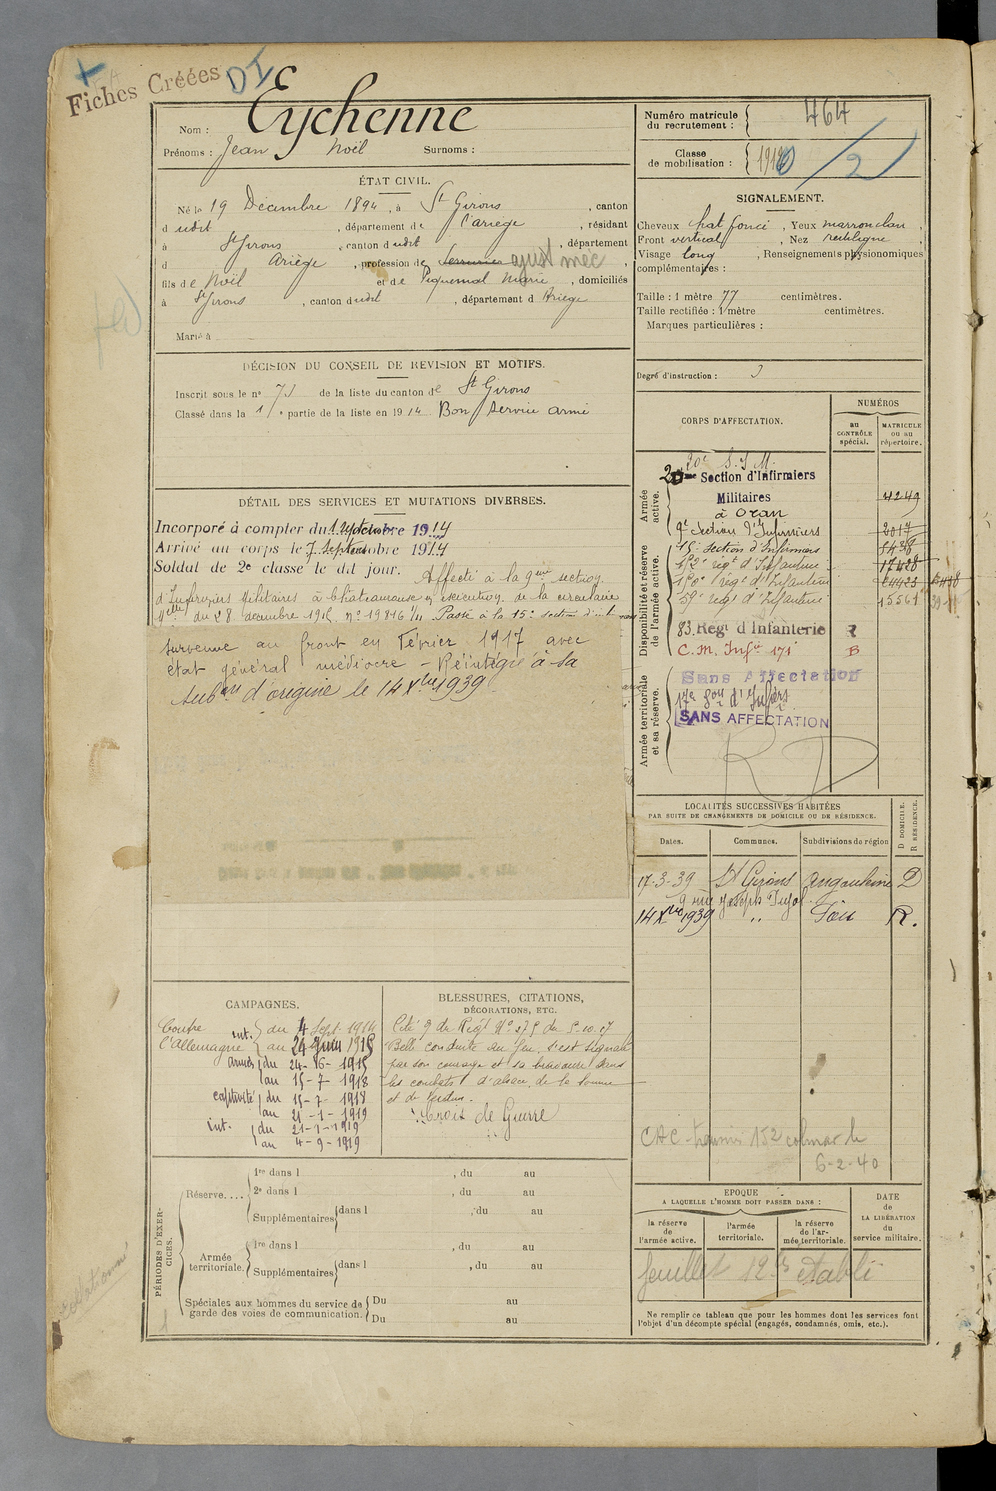 Fiches Créées
DI
Nom : Eychenne
Prénoms : Jean Noël Surnoms :
ÉTAT CIVIL.
Né le 19 Décembre 1894, à St Girons, canton
dudit, département de l'ariège, résidant
à St Girons, canton dudit, département
d Ariège, profession de Serrurier ajust mec,
fils de Noël et de Piquemal Marie, domiciliés
à St Girons, canton dudit, département d Ariège
Marié à
DÉCISION DU CONSEIL DE REVISION ET MOTIFS.
Inscrit sous le no 73 de la liste du canton de St Girons
Classé dans la 1re partie de la liste en 1914 Bon service armé
DÉTAIL DES SERVICES ET MUTATIONS DIVERSES.
Incorporé à compter du 1 Septembre 1914
Arrivé au corps le 7 Septembre 1914
Soldat de 2e classe le dit jour. Affecté à la 9eme section
d'Infirmiers Militaires à Châteauroux en exécution de la circulaire
du 28 décembre 1915 no 19816 Passé à la 15e section d'Inf
survenue au front en Février 1917 avec
état général médiocre - Réintégré à sa
Subon d'origine le 14 Xbre 1939
CAMPAGNES.
Contre l'Allemagne
int. du 4 Sept. 1914
au 24 Juin 1915
armées du 24-6-1915
au 15-7-1918
captivité du 15-7-1918
au 21-1-1919
int. du 21-1-1919
au 4-9-1919
BLESSURES, CITATIONS,
DÉCORATIONS, ETC.
Cité O du Régt No 275 du 5-10-17
Belle conduite au feu, s'est signalé
par son courage et sa bravoure dans
les combats d'alsace, de la somme
et de Verdun.
Croix de Guerre
PÉRIODES D'EXERCICES.
Réserve....
1re dans l , du au
2e dans l , du au
Supplémentaires dans l , du au
Armée territoriale.
1re dans l , du au
Supplémentaires dans l , du au
Spéciales aux hommes du service de
garde des voies de communication.
Du au
Du au
Numéro matricule
du recrutement : 464
Classe
de mobilisation : 1910 /2
SIGNALEMENT.
Cheveux chat foncé, Yeux marron clair,
Front vertical, Nez rectiligne,
Visage long, Renseignements physionomiques
complémentaires :
Taille : 1 mètre 77 centimètres.
Taille rectifiée : 1 mètre centimètres.
Marques particulières :
Degré d'instruction : 3
CORPS D'AFFECTATION.
NUMÉROS
au
CONTRÔLE
spécial.
MATRICULE
ou au
répertoire.
Armée
active.
20e S.I.M.
20eme Section d'Infirmiers
Militaires 4249
à Oran
9e Section d'Infirmiers 2017
Disponibilité et réserve
de l'armée active.
15e section d'Infirmiers
152e régt d'Infanterie 17428
170e régt d'Infanterie
59e régt d'Infanterie 15561
83 Régt d'Infanterie R
C.M. Infie 171 B
Armée territoriale
et sa réserve.
Sans Affectation
17e Son d'Infirs
SANS AFFECTATION
RD
LOCALITÉS SUCCESSIVES HABITÉES
PAR SUITE DE CHANGEMENTS DE DOMICILE OU DE RÉSIDENCE.
Dates. Communes. Subdivisions de région
D DOMICILE.
R RÉSIDENCE.
17-3-39 St Girons Angoulême D
9 rue Joseph Pujol
14 Xbre 1939 ,, Foix R.
152 colmar le
6-2-40
EPOQUE
A LAQUELLE L'HOMME DOIT PASSER DANS :
la réserve
de
l'armée active.
l'armée
territoriale.
la réserve
de l'ar-
mée territoriale.
DATE
de
LA LIBÉRATION
du
service militaire.
feuillet 12 établi
Ne remplir ce tableau que pour les hommes dont les services font
l'objet d'un décompte spécial (engagés, condamnés, omis, etc.).